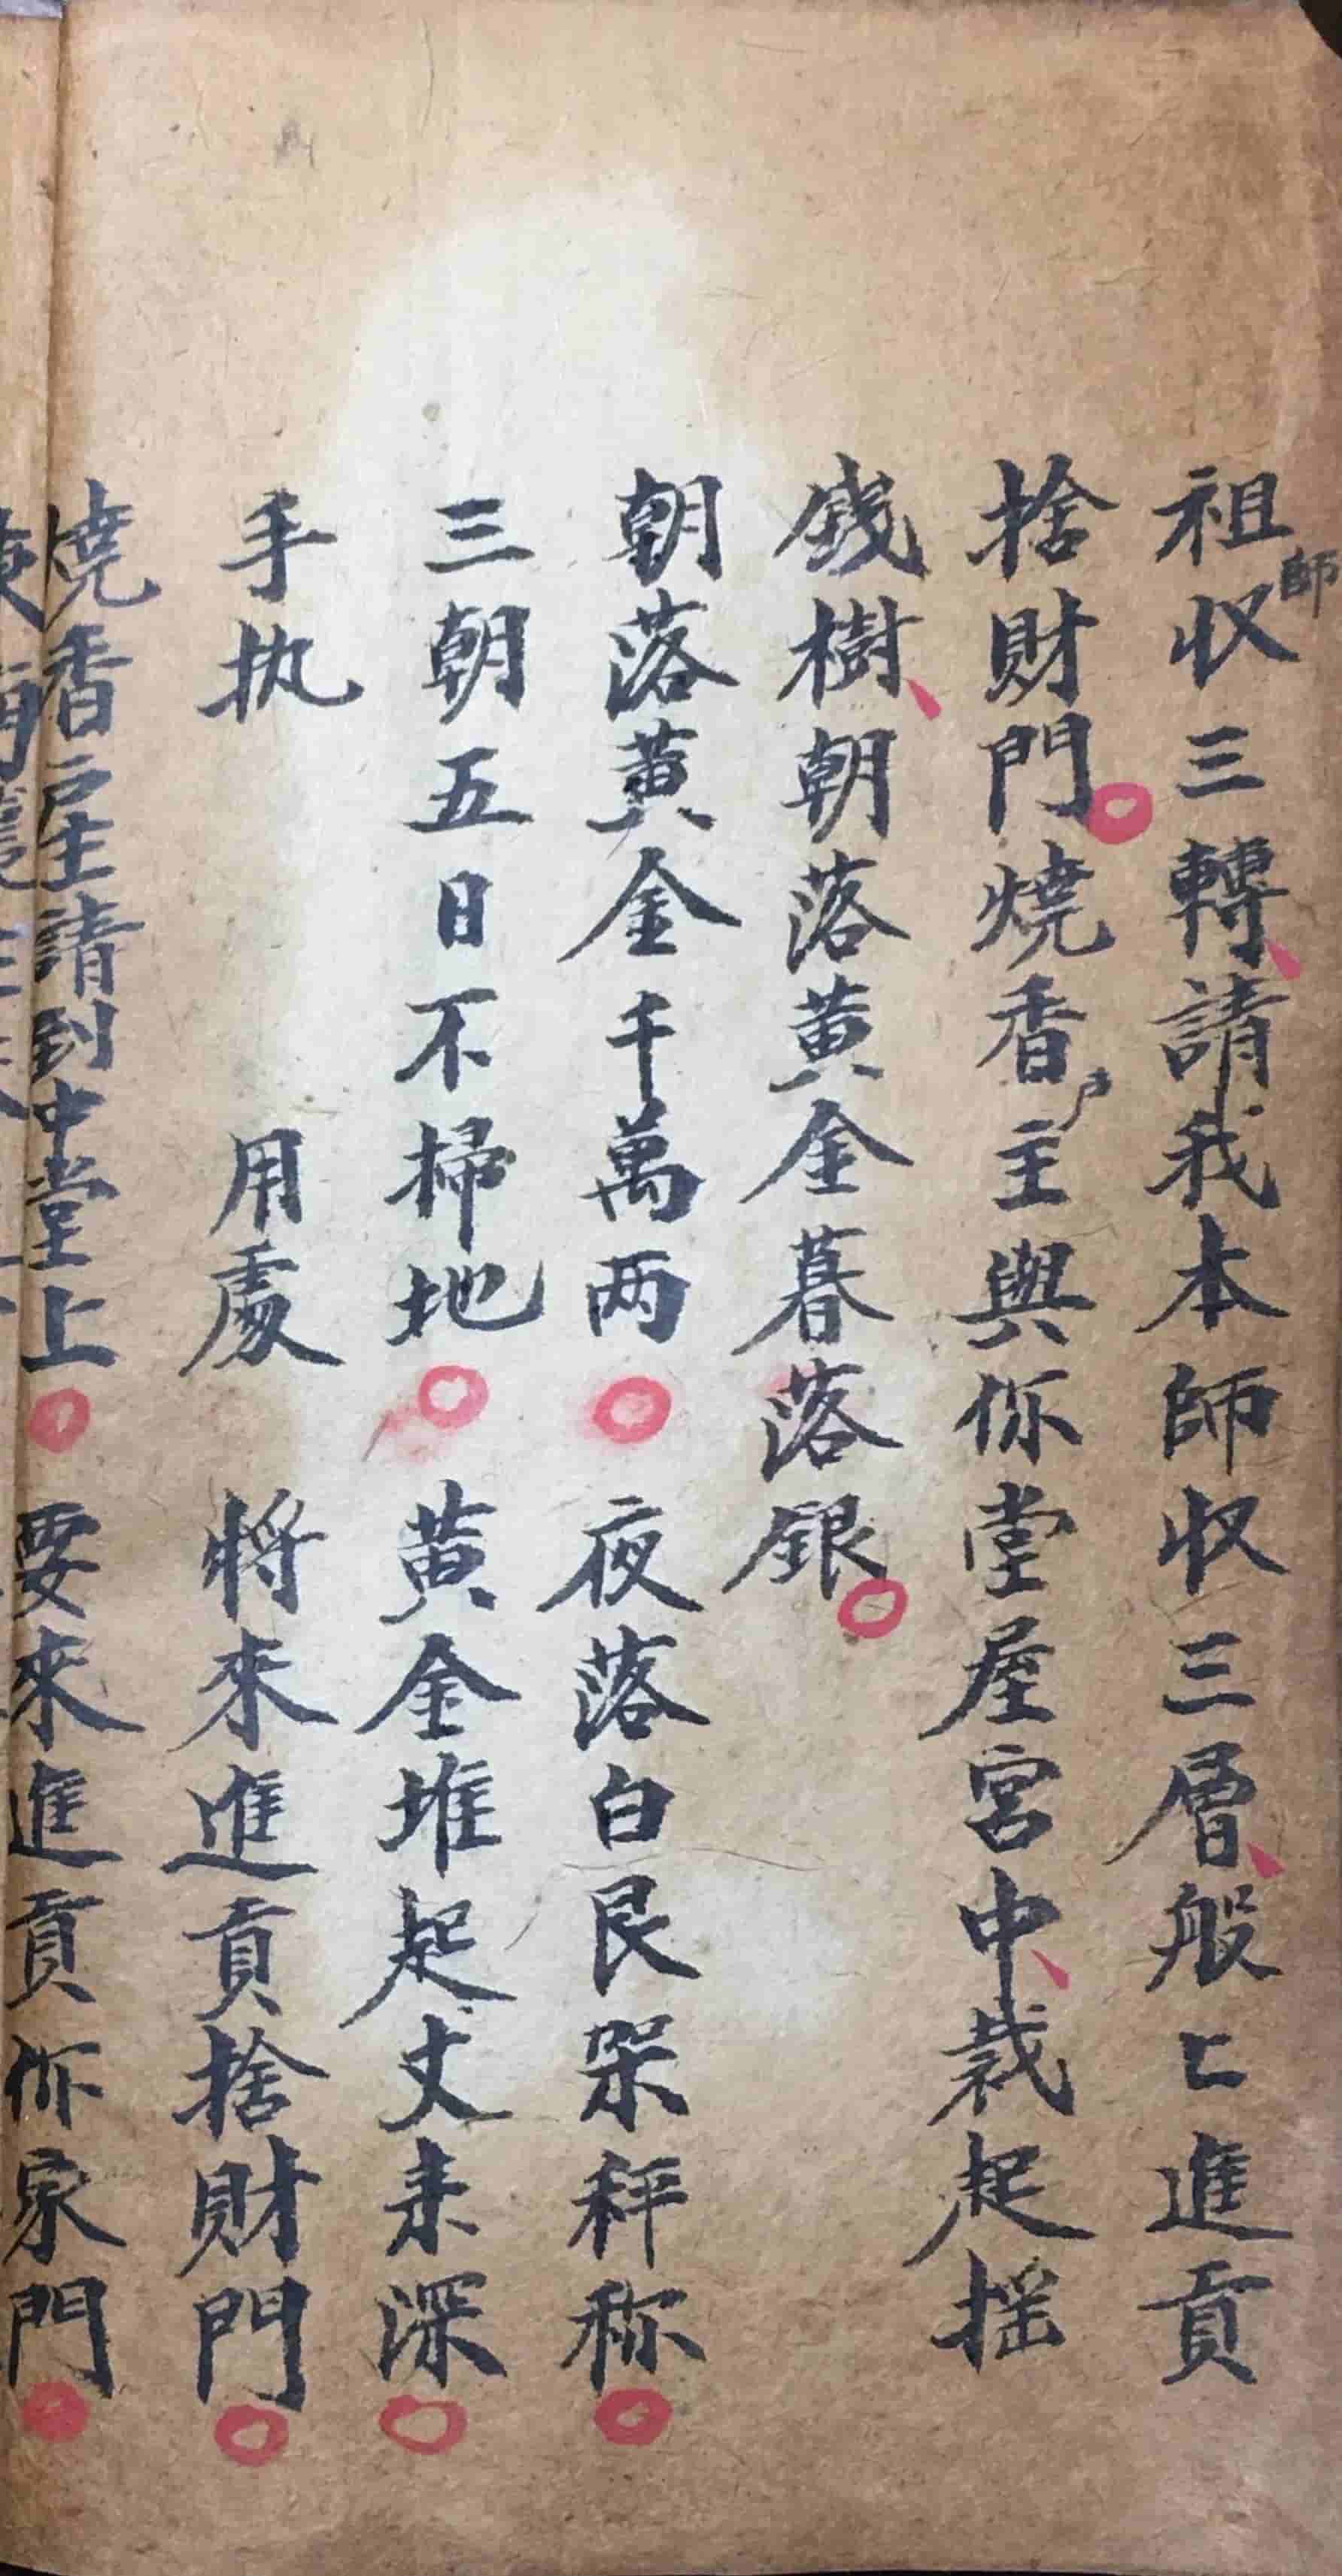 祖師収三轉請我本師収三層般〻進貢
捨財門燒香戶主與你堂屋宮中栽起摇
錢樹朝落黄金暮落銀
朝落黄金千萬两夜落白艮架秤称
三朝五日不掃地黄金堆起丈耒深
手执用處將來進貢捨財門
燒香戶主請到中堂上要來進貢你家門